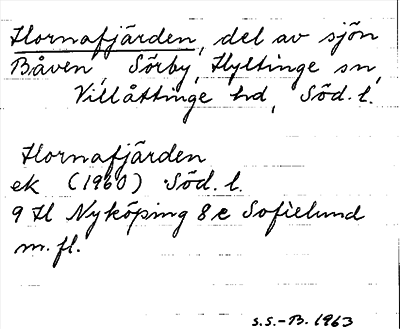 Hornafjärden, del av sjön
Båven, Sörby, Hyltinge sn,
Villåttinge hd, Söd. l.
Hornafjärden
ek (1960) Söd. l.
9 H Nyköping 8 e Sofielund
m. fl.
S.S.-B. 1963